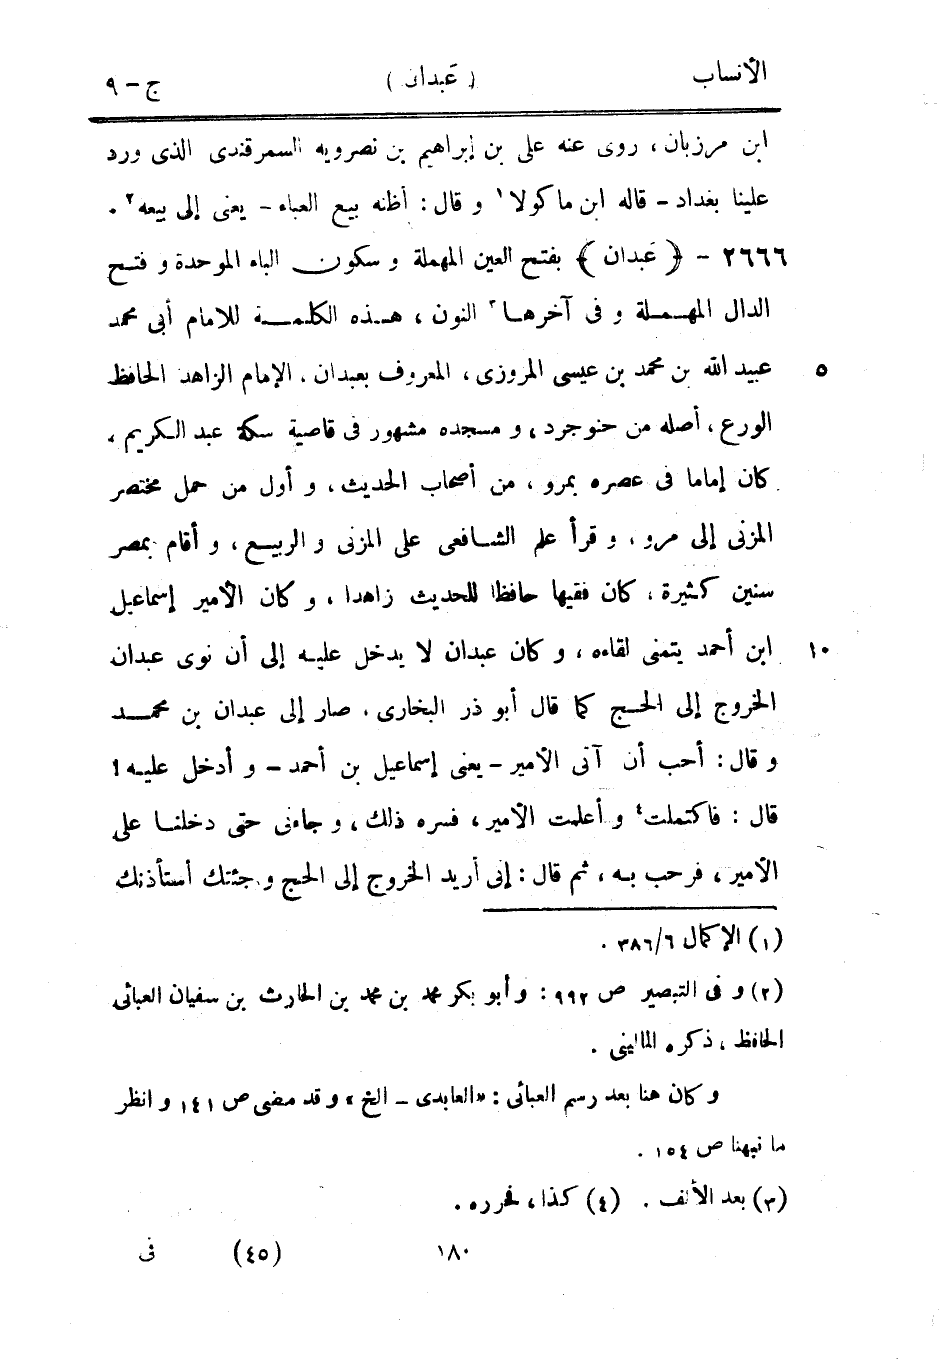 الأنساب ( عَبدان ) ج - ٩
ابن مرزبان ، روى عنه على بن إبراهيم بن نصرويه السمرقندى الذى ورد
علينا بغداد - قاله ابن ماكولا ١ و قال : أظنه بيع العباء - يعنى إلى بيعه ٢ .
٢٦٦٦ - ﴿ عَبدان ﴾ بفتح العين المهملة و سكون الباء الموحدة و فتح
الدال المهملة و فى آخرها ٣ النون ، هذه الكلمة للامام أبى محمد
٥ عبيد الله بن محمد بن عيسى المروزى ، المعروف بعبدان ، الإمام الزاهد الحافظ
الورع ، أصله من حنوجرد ، و مسجده مشهور فى قاصية سكة عبد الكريم ،
كان إماما فى عصره بمرو ، من أصحاب الحديث ، و أول من حمل مختصر
المزنى إلى مرو ، و قرأ علم الشافعى على المزنى و الربيع ، و أقام بمصر
سنين كثيرة ، كان فقيها حافظا للحديث زاهدا ، و كان الأمير إسماعيل
١٠ ابن أحمد يتمنى لقاءه ، و كان عبدان لا يدخل عليه إلى أن نوى عبدان
الخروج إلى الحج كما قال أبو ذر البخارى ، صار إلى عبدان بن محمد
و قال : أحب أن آتى الأمير - يعنى إسماعيل بن أحمد - و أدخل عليه !
قال : فاكتملت ٤ و أعلمت الأمير ، فسره ذلك ، و جاءنى حتى دخلنا على
الأمير ، فرحب به ، ثم قال : إنى أريد الخروج إلى الحج و جئتك أستأذنك
(١) الإكمال ٦/ ٣٨٦ .
(٢) و فى التبصير ص ٩٩٢ : و أبو بكر محمد بن محمد بن الحارث بن سفيان العبائى
الحافظ ، ذكره المالينى .
و كان هنا بعد رسم العبائى : «العابدى - الخ» و قد مضى ص ١٤١ و انظر
ما نبهنا ص ١٥٤ .
(٣) بعد الألف . (٤) كذا ، فحرره .
١٨٠ (٤٥) فى